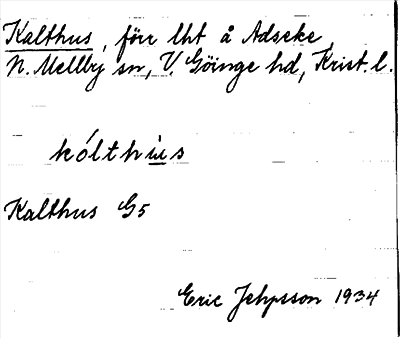 Kalthus, förr lht å Adseke,
N. Mellby sn, V. Göinge hd, Krist. l.
kólthùs
Kalthus G5
Eric Jehpsson 1934